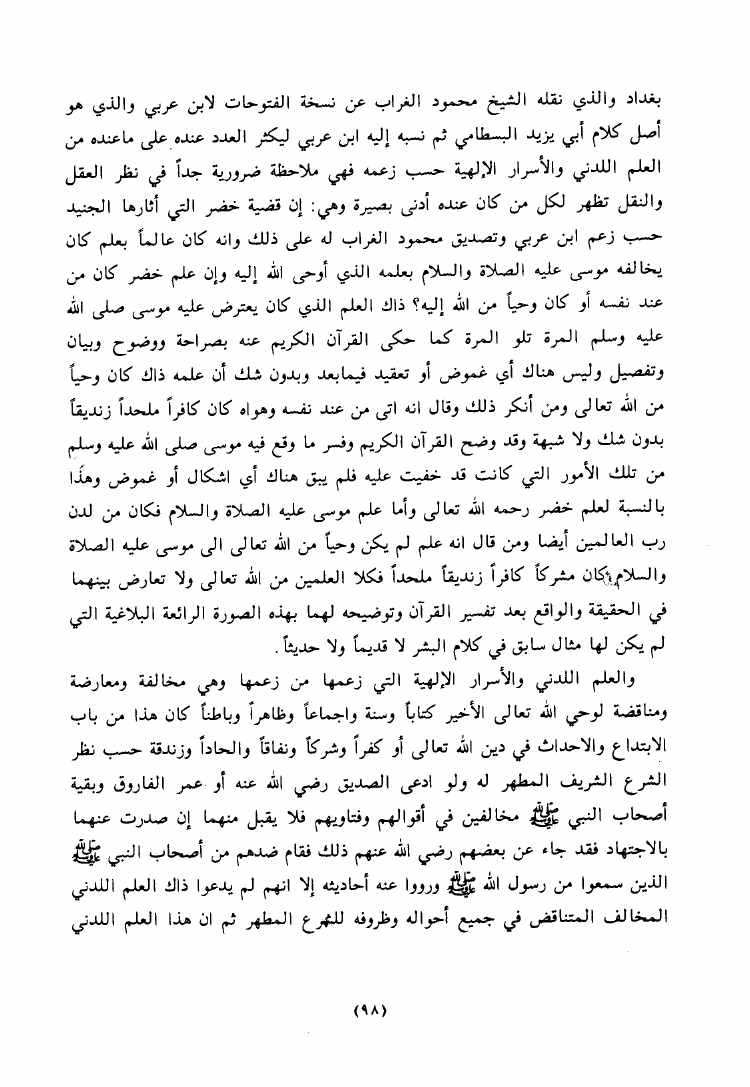 بغداد والذي نقله الشيخ محمود الغراب عن نسخة الفتوحات لابن عربي والذي هو
أصل كلام أبي يزيد البسطامي ثم نسبه إليه ابن عربي ليكثر العدد عنده على ماعنده من
العلم اللدني والأسرار الإلهية حسب زعمه فهي ملاحظة ضرورية جداً في نظر العقل
والنقل تظهر لكل من كان عنده أدنى بصيرة وهي: إن قضية خضر التي أثارها الجنيد
حسب زعم ابن عربي وتصديق محمود الغراب له على ذلك وانه كان عالماً بعلم كان
يخالفه موسى عليه الصلاة والسلام بعلمه الذي أوحى الله إليه وإن علم خضر كان من
عند نفسه أو كان وحياً من الله إليه؟ ذاك العلم الذي كان يعترض عليه موسى صلى الله
عليه وسلم المرة تلو المرة كما حكى القرآن الكريم عنه بصراحة ووضوح وبيان
وتفصيل وليس هناك أي غموض أو تعقيد فيمابعد وبدون شك أن علمه ذاك كان وحياً
من الله تعالى ومن أنكر ذلك وقال انه اتى من عند نفسه وهواه كان كافراً ملحداً زنديقاً
بدون شك ولا شبهة وقد وضح القرآن الكريم وفسر ما وقع فيه موسى صلى الله عليه وسلم
من تلك الأمور التي كانت قد خفيت عليه فلم يبق هناك أي اشكال أو غموض وهذا
بالنسبة لعلم خضر رحمه الله تعالى وأما علم موسى عليه الصلاة والسلام فكان من لدن
رب العالمين أيضا ومن قال انه علم لم يكن وحياً من الله تعالى الى موسى عليه الصلاة
والسلام كان مشركاً كافراً زنديقاً ملحداً فكلا العلمين من الله تعالى ولا تعارض بينهما
في الحقيقة والواقع بعد تفسير القرآن وتوضيحه لهما بهذه الصورة الرائعة البلاغية التي
لم يكن لها مثال سابق في كلام البشر لا قديماً ولا حديثاً.
والعلم اللدني والأسرار الإلهية التي زعمها من زعمها وهي مخالفة ومعارضة
ومناقضة لوحي الله تعالى الأخير كتاباً وسنة واجماعاً وظاهراً وباطناً كان هذا من باب
الابتداع والاحداث في دين الله تعالى أو كفراً وشركاً ونفاقاً والحاداً وزندقة حسب نظر
الشرع الشريف المطهر له ولو ادعى الصديق رضي الله عنه أو عمر الفاروق وبقية
أصحاب النبي ﷺ مخالفين في أقوالهم وفتاويهم فلا يقبل منهما إن صدرت عنهما
بالاجتهاد فقد جاء عن بعضهم رضي الله عنهم ذلك فقام ضدهم من أصحاب النبي ﷺ
الذين سمعوا من رسول الله ﷺ ورووا عنه أحاديثه إلا انهم لم يدعوا ذاك العلم اللدني
المخالف المتناقض في جميع أحواله وظروفه للشرع المطهر ثم ان هذا العلم اللدني
(٩٨)